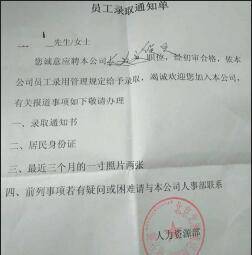 员工录取通知单
先生/女士
您诚意应聘本公司 职位，经初审合格，依本
公司员工录用管理规定给予录取，竭诚欢迎您加入本公司，
有关报道事项如下敬请办理
一、录取通知书
二、居民身份证
三、最近三个月的一寸照片两张
四、前列事项若有疑问或困难请与本公司人事部联系
人力资源部